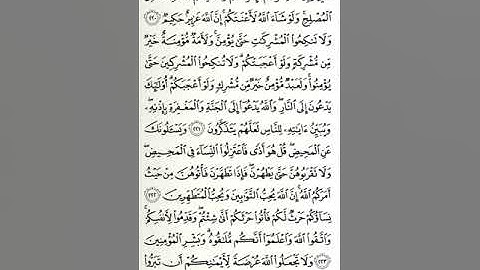 ٱلۡمُصۡلِحِۚ وَلَوۡ شَآءَ ٱللَّهُ لَأَعۡنَتَكُمۡۚ إِنَّ ٱللَّهَ عَزِيزٌ حَكِيمٞ ٢٢٠
وَلَا تَنكِحُواْ ٱلۡمُشۡرِكَٰتِ حَتَّىٰ يُؤۡمِنَّۚ وَلَأَمَةٞ مُّؤۡمِنَةٌ خَيۡرٞ
مِّن مُّشۡرِكَةٖ وَلَوۡ أَعۡجَبَتۡكُمۡۗ وَلَا تُنكِحُواْ ٱلۡمُشۡرِكِينَ حَتَّىٰ
يُؤۡمِنُواْۚ وَلَعَبۡدٞ مُّؤۡمِنٌ خَيۡرٞ مِّن مُّشۡرِكٖ وَلَوۡ أَعۡجَبَكُمۡۗ أُوْلَٰٓئِكَ
يَدۡعُونَ إِلَى ٱلنَّارِۖ وَٱللَّهُ يَدۡعُوٓاْ إِلَى ٱلۡجَنَّةِ وَٱلۡمَغۡفِرَةِ بِإِذۡنِهِۦۖ
وَيُبَيِّنُ ءَايَٰتِهِۦ لِلنَّاسِ لَعَلَّهُمۡ يَتَذَكَّرُونَ ٢٢١ وَيَسۡـَٔلُونَكَ
عَنِ ٱلۡمَحِيضِۖ قُلۡ هُوَ أَذٗى فَٱعۡتَزِلُواْ ٱلنِّسَآءَ فِي ٱلۡمَحِيضِ
وَلَا تَقۡرَبُوهُنَّ حَتَّىٰ يَطۡهُرۡنَۖ فَإِذَا تَطَهَّرۡنَ فَأۡتُوهُنَّ مِنۡ حَيۡثُ
أَمَرَكُمُ ٱللَّهُۚ إِنَّ ٱللَّهَ يُحِبُّ ٱلتَّوَّٰبِينَ وَيُحِبُّ ٱلۡمُتَطَهِّرِينَ ٢٢٢
نِسَآؤُكُمۡ حَرۡثٞ لَّكُمۡ فَأۡتُواْ حَرۡثَكُمۡ أَنَّىٰ شِئۡتُمۡۖ وَقَدِّمُواْ لِأَنفُسِكُمۡۚ
وَٱتَّقُواْ ٱللَّهَ وَٱعۡلَمُوٓاْ أَنَّكُم مُّلَٰقُوهُۗ وَبَشِّرِ ٱلۡمُؤۡمِنِينَ
٢٢٣ وَلَا تَجۡعَلُواْ ٱللَّهَ عُرۡضَةٗ لِّأَيۡمَٰنِكُمۡ أَن تَبَرُّواْ